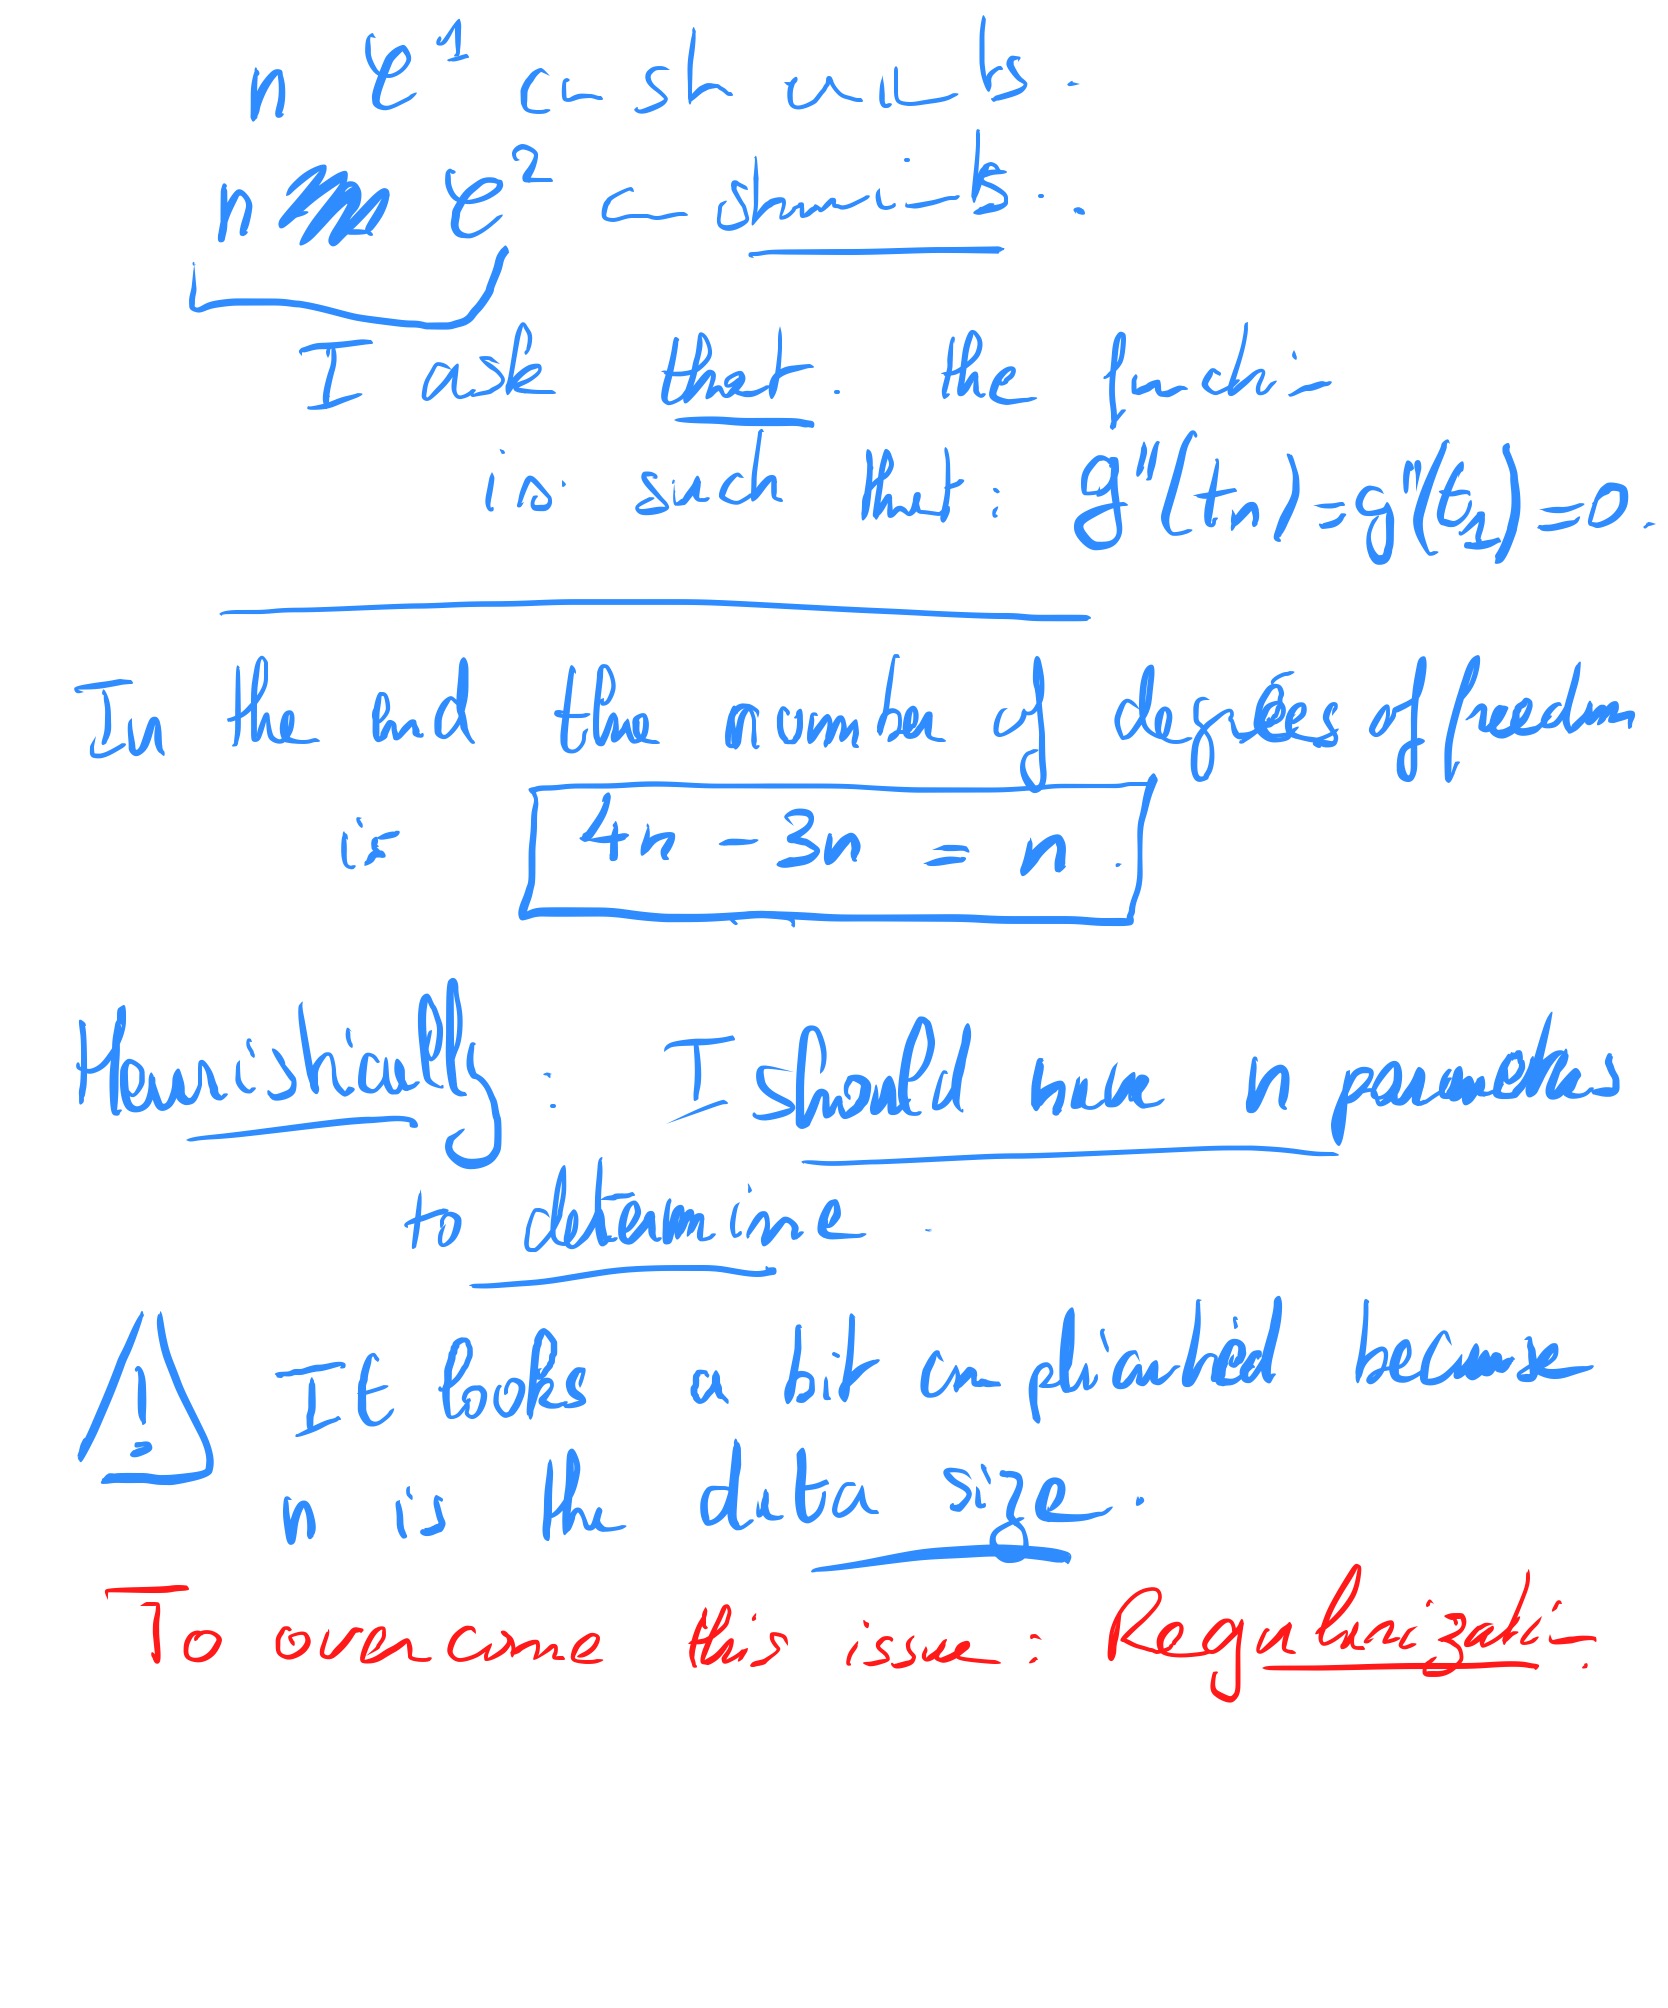 n C¹ constraints.
n C² constraints.
I ask that the function
is such that: g''(tₙ) = g''(t₁) = 0.
In the end the number of degrees of freedom
is 4n - 3n = n.
Heuristically: I should have n parameters
to determine.
! It looks a bit complicated because
n is the data size.
To overcome this issue: Regularization.